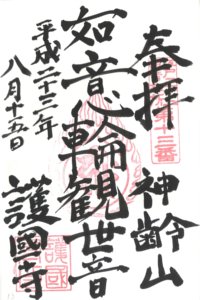 奉拝
第十三番
神齢山
如意輪観世音
平成二十三年
八月十五日
護國寺